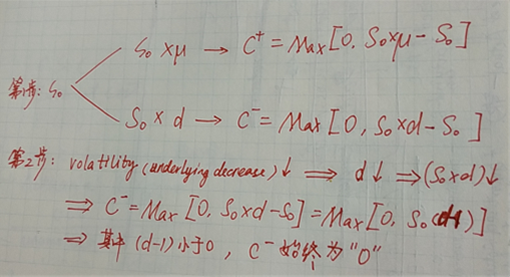 S₀ × μ → C⁺ = Max [0, S₀×μ - S₀]
第1步: S₀
S₀ × d → C⁻ = Max [0, S₀×d - S₀]
第2步: volatility (underlying decrease) ↓ ⟹ d ↓ ⟹ (S₀×d) ↓
⟹ C⁻ = Max [0, S₀×d - S₀] = Max [0, S₀(d-1)]
⟹ 其中 (d-1) 小于0, C⁻ 始终为 "0"